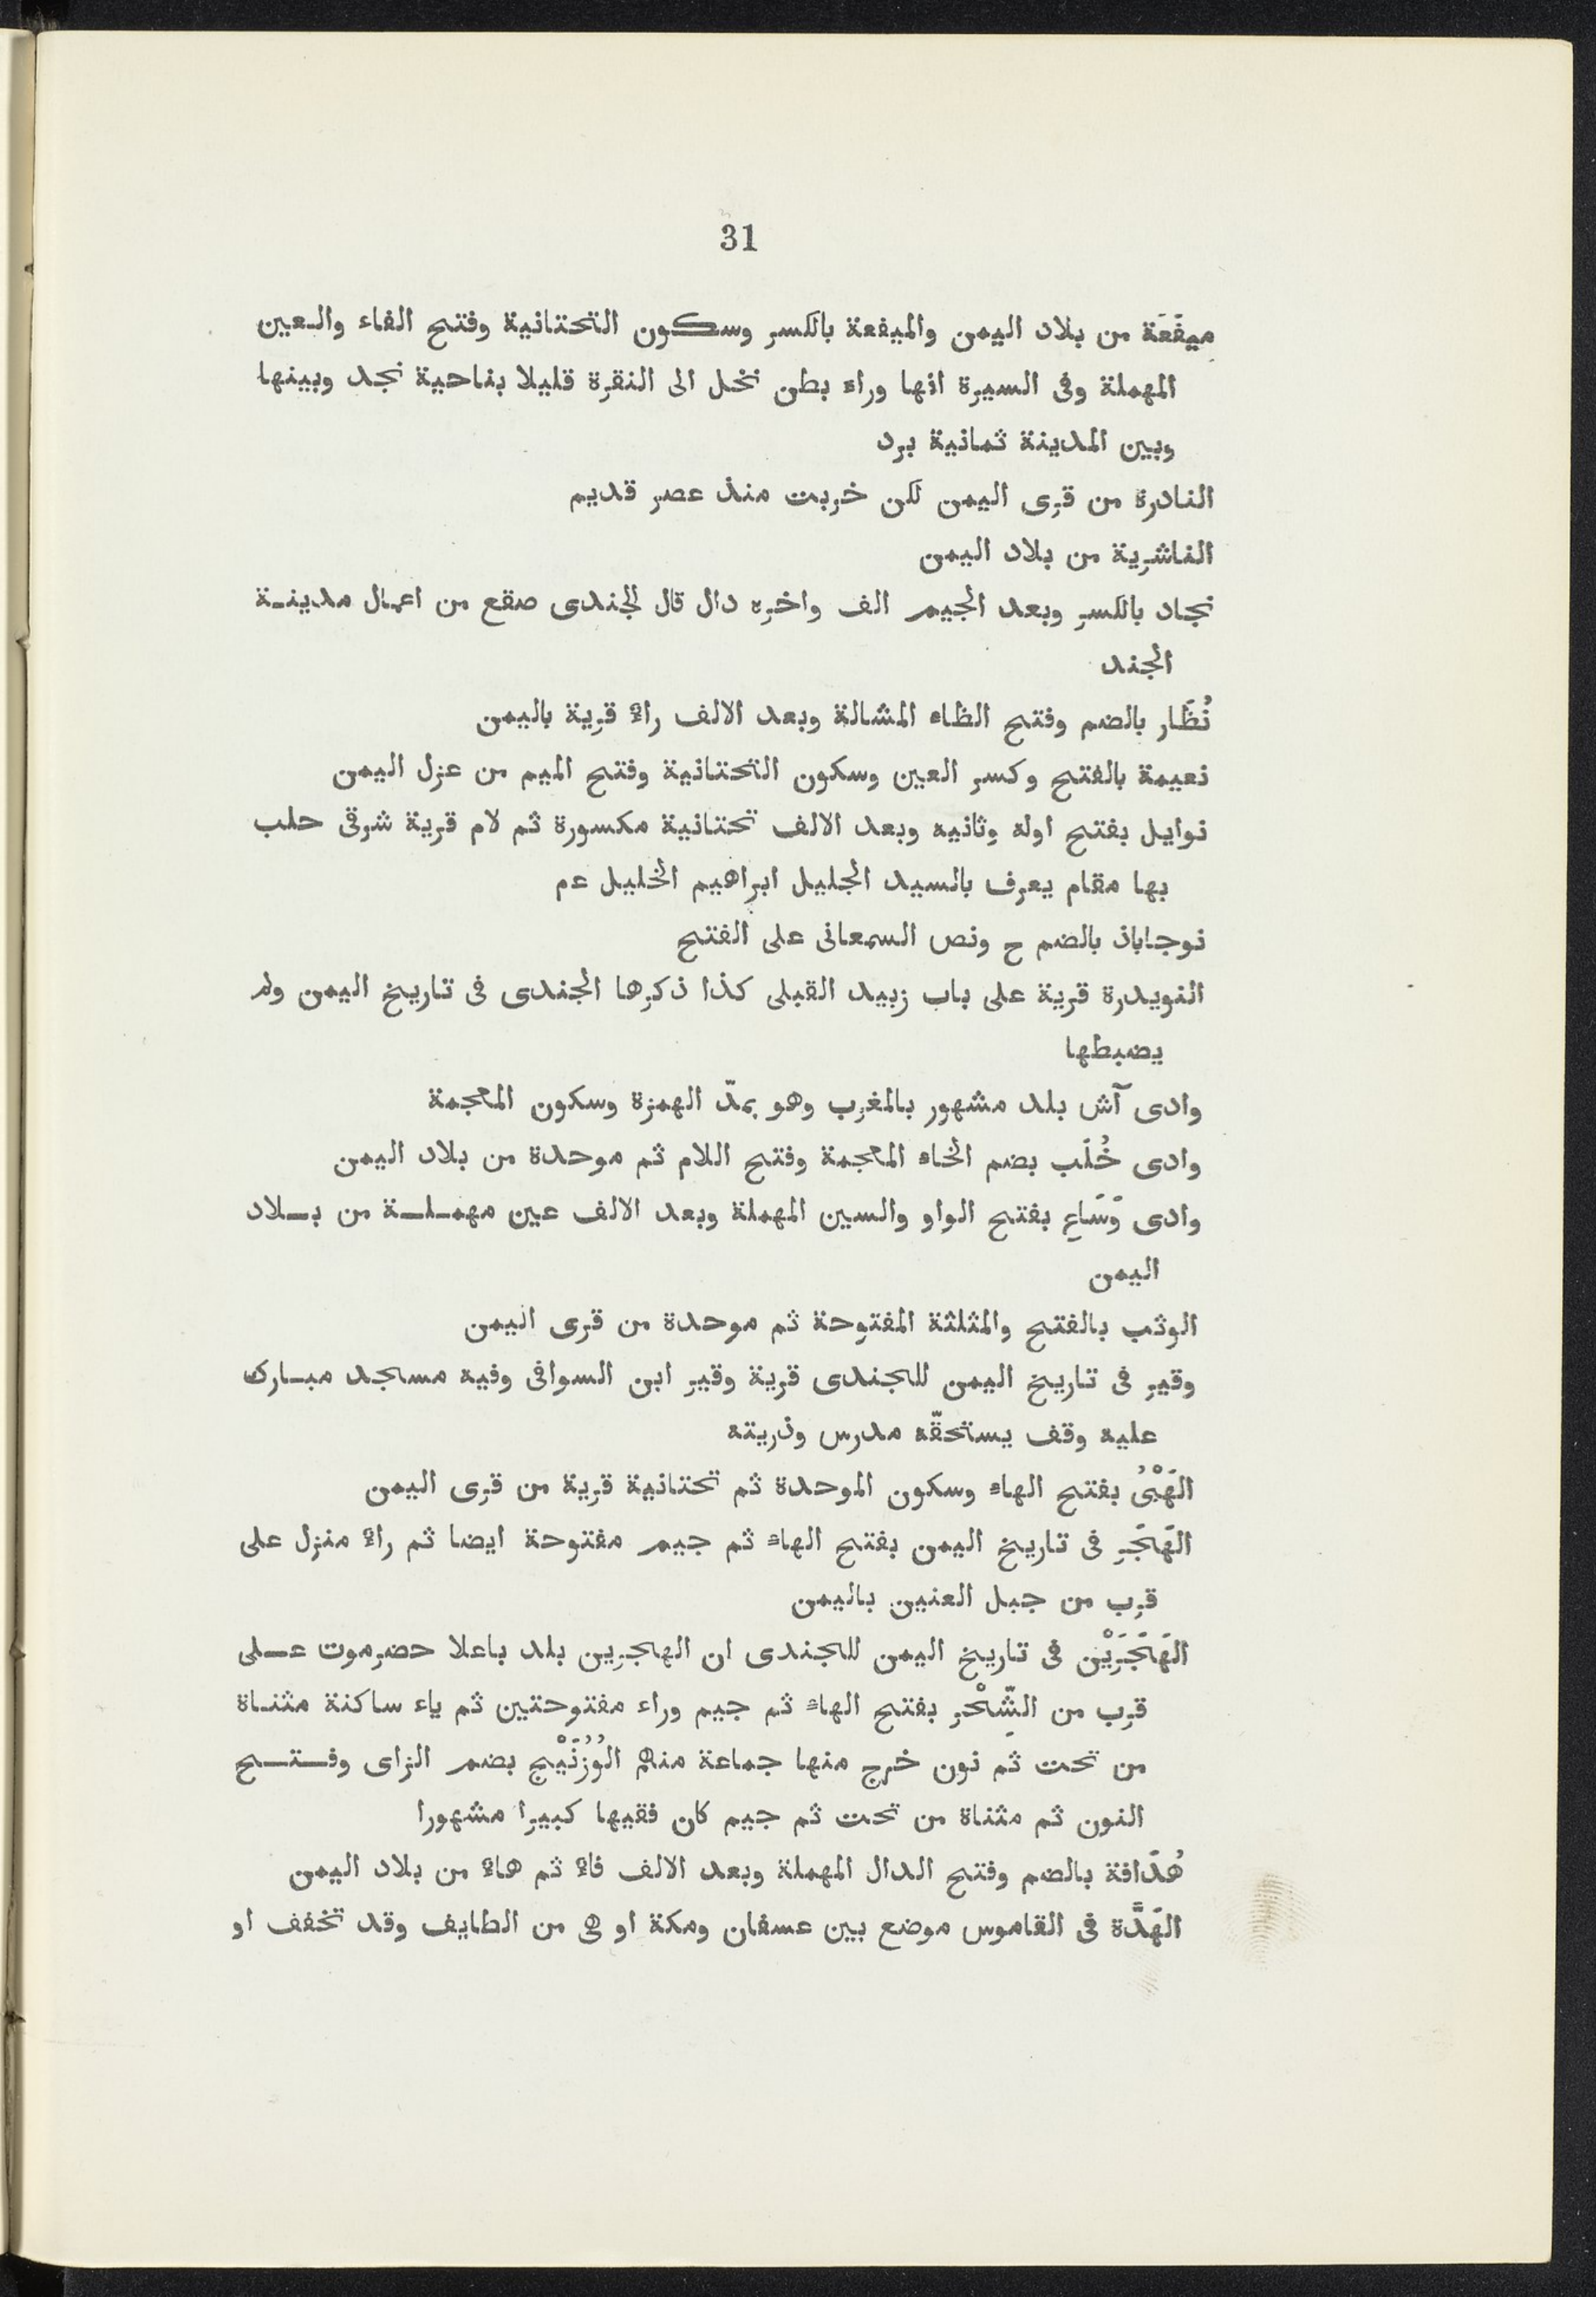 31
ميفَعَة من بلاد اليمن والميفعة بالكسر وسكون التحتانية وفتح الفاء والعين
المهملة وفى السيرة انها وراء بطن نخل الى النقرة قليلا بناحية نجد وبينها
وبين المدينة ثمانية برد
النادرة من قرى اليمن لكن خربت منذ عصر قديم
الناشرية من بلاد اليمن
نجاد بالكسر وبعد الجيم الف واخره دال قال للجندى صقع من اعمال مدينة
الجند
نُظَار بالضم وفتح الظاء المشالة وبعد الالف راء قرية باليمن
نعيمة بالفتح وكسر العين وسكون التحتانية وفتح الميم من عزل اليمن
نوايل بفتح اوله وثانيه وبعد الالف تحتانية مكسورة ثم لام قرية شرقى حلب
بها مقام يعرف بالسيد الجليل ابراهيم الخليل عم
نوجاباذ بالضم ح ونص السمعانى على الفتح
النويدرة قرية على باب زبيد القبلى كذا ذكرها الجندى فى تاريخ اليمن ولم
يضبطها
وادى آش بلد مشهور بالمغرب وهو بمدّ الهمزة وسكون المعجمة
وادى خُلَب بضم الخاء المعجمة وفتح اللام ثم موحدة من بلاد اليمن
وادى وَسَاعِ بفتح الواو والسين المهملة وبعد الالف عين مهملة من بلاد
اليمن
الوثب بالفتح والمثلثة المفتوحة ثم موحدة من قرى اليمن
وقير فى تاريخ اليمن للجندى قرية وقير ابن السوافى وفيه مسجد مبارك
عليه وقف يستحقّه مدرس وذريته
الهَبْىُ بفتح الهاء وسكون الموحدة ثم تحتانية قرية من قرى اليمن
الهَجَرِ فى تاريخ اليمن بفتح الهاء ثم جيم مفتوحة ايضا ثم راء منزل على
قرب من جبل العنين باليمن
الهَجَرَيْن فى تاريخ اليمن للجندى ان الهجرين بلد باعلا حضرموت على
قرب من الشِّحْرِ بفتح الهاء ثم جيم وراء مفتوحتين ثم ياء ساكنة مثناة
من تحت ثم نون خرج منها جماعة منهم الوُزُنَيْج بضم الزاى وفتح
النون ثم مثناة من تحت ثم جيم كان فقيها كبيرا مشهورا
هُدَافة بالضم وفتح الدال المهملة وبعد الالف فاء ثم هاء من بلاد اليمن
الهَدَّة فى القاموس موضع بين عسفان ومكة او هى من الطايف وقد تخفف او